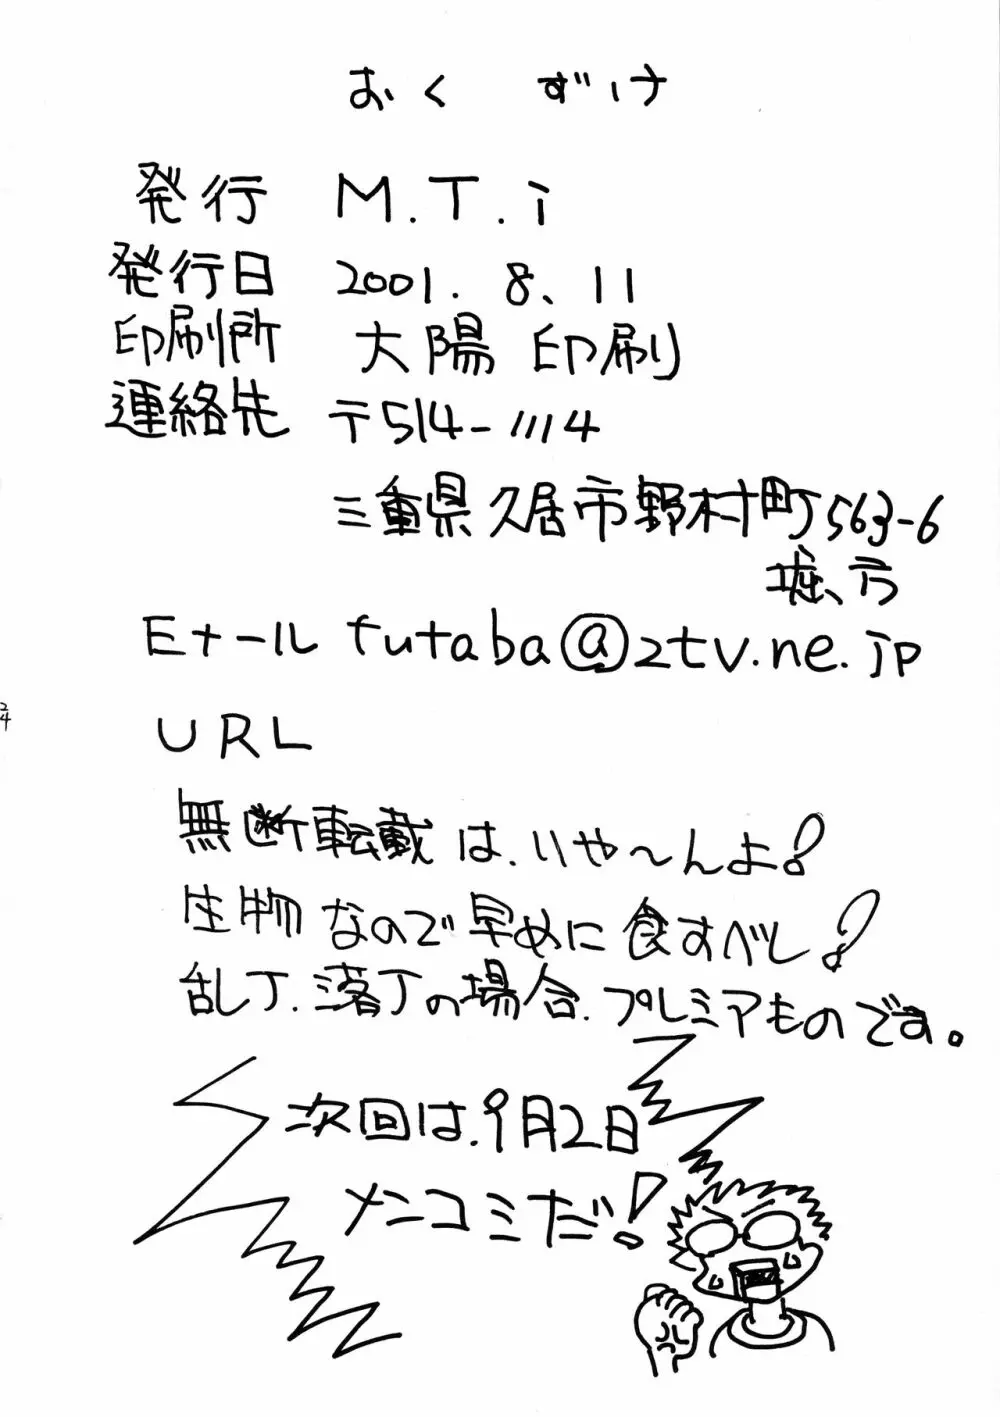 おくずけ
発行 M.T.i
発行日 2001.8.11
印刷所 大陽印刷
連絡先 〒514-1114
三重県久居市野村町563-6
堀方
Eメール futaba@ztv.ne.jp
URL
無断転載は、いや〜んよ!
生物なので早めに食すべし!
乱丁、落丁の場合、プレミアものです。
次回は、9月2日
メンコミだ!
24